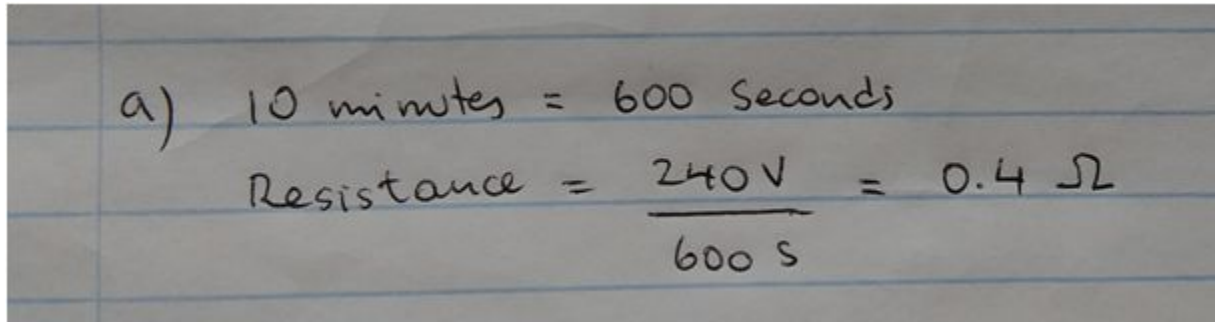 a) 10 minutes = 600 seconds
Resistance = 240V / 600 s = 0.4 Ω